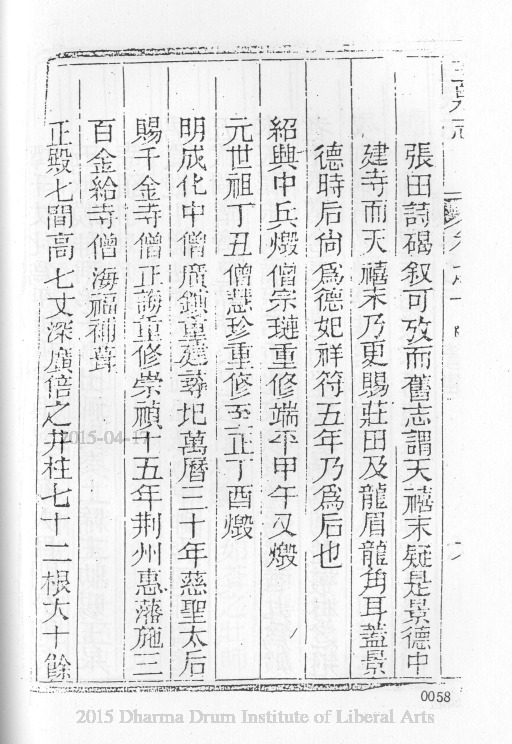 張田詩碣叙可攷而舊志謂天禧末疑是景德中
建寺而天禧末乃更賜莊田及龍眉龍角耳蓋景
德時后尙爲德妃祥符五年乃爲后也
紹興中兵燬僧宗璉重修端平甲午又燬
元世祖丁丑僧慧珍重修至正丁酉燬
明成化中僧廣鎖重建尋圮萬曆二十年慈聖太后
賜千金寺僧正誨重修崇禎十五年荆州惠藩施三
百金給寺僧海福補葺
正殿七間高七丈深廣倍之井柱七十二根大十餘
2015-04-17
0058
2015 Dharma Drum Institute of Liberal Arts